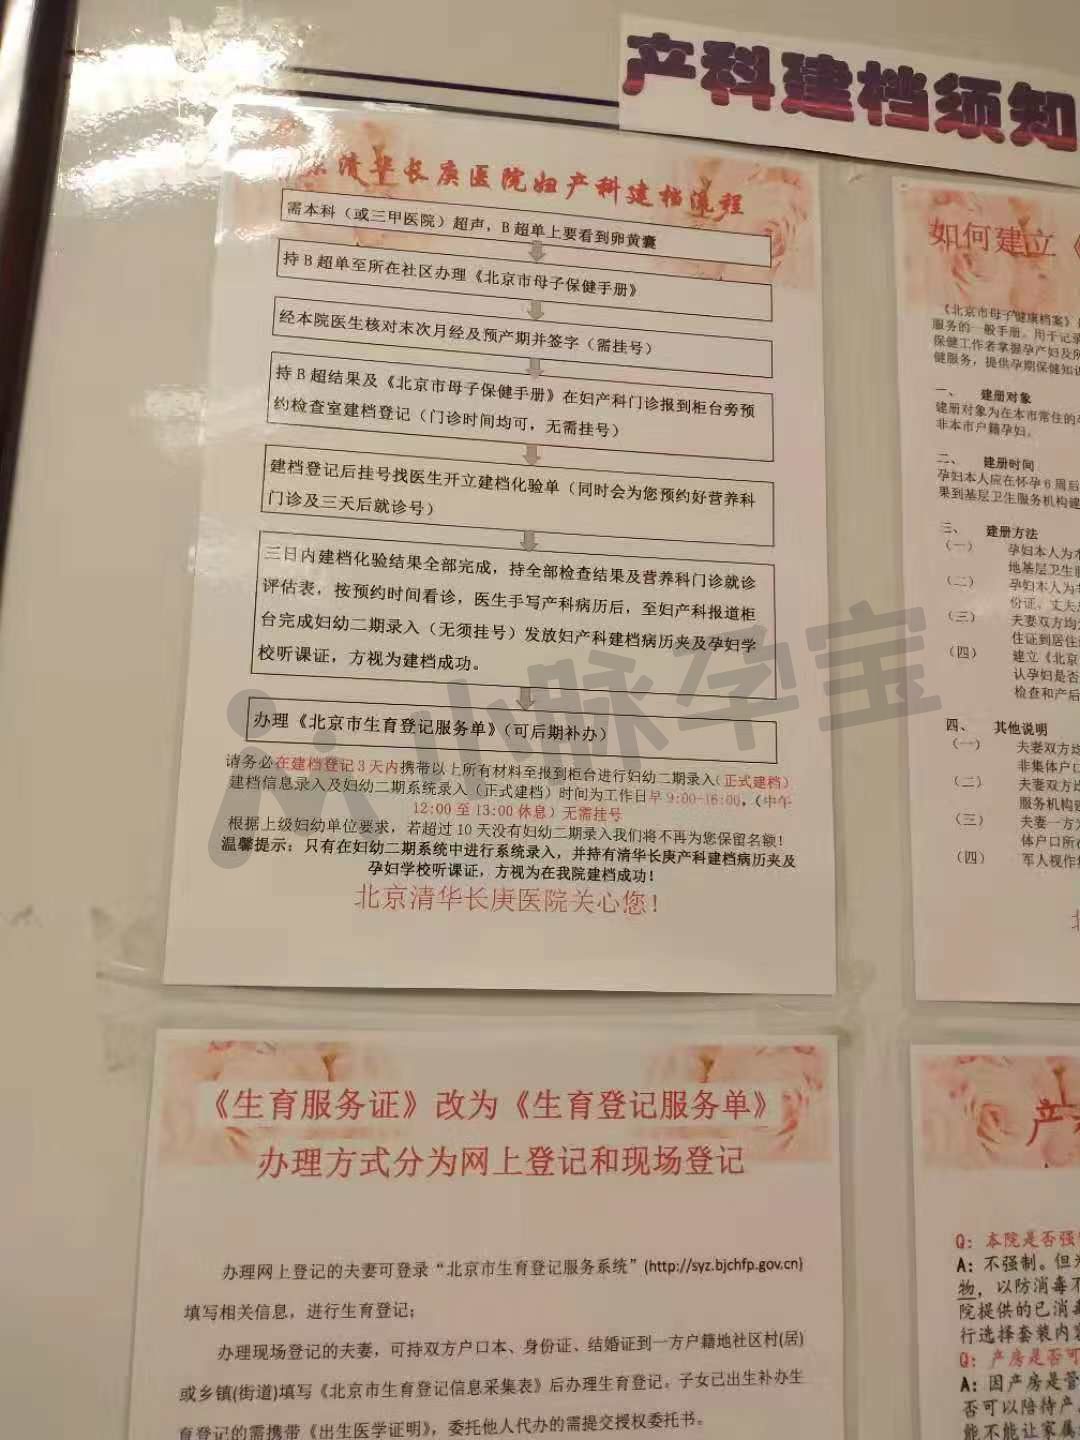 产科建档须知
京清华长庚医院妇产科建档流程
需本科（或三甲医院）超声，B超单上要看到卵黄囊
持B超单至所在社区办理《北京市母子保健手册》
经本院医生核对末次月经及预产期并签字（需挂号）
持B超结果及《北京市母子保健手册》在妇产科门诊报到柜台旁预
约检查室建档登记（门诊时间均可，无需挂号）
建档登记后挂号找医生开立建档化验单（同时会为您预约好营养科
门诊及三天后就诊号）
三日内建档化验结果全部完成，持全部检查结果及营养科门诊就诊
评估表，按预约时间看诊，医生手写产科病历后，至妇产科报道柜
台完成妇幼二期录入（无须挂号）发放妇产科建档病历夹及孕妇学
校听课证，方视为建档成功。
办理《北京市生育登记服务单》（可后期补办）
请务必在建档登记3天内携带以上所有材料至报到柜台进行妇幼二期录入（正式建档）
建档信息录入及妇幼二期系统录入（正式建档）时间为工作日早9:00-16:00，（中午
12:00至13:00休息）无需挂号
根据上级妇幼单位要求，若超过10天没有妇幼二期录入我们将不再为您保留名额！
温馨提示：只有在妇幼二期系统中进行系统录入，并持有清华长庚产科建档病历夹及
孕妇学校听课证，方视为在我院建档成功！
北京清华长庚医院关心您！
如何建立《
《北京市母子健康档案》
服务的一般手册。用于记录
保健工作者掌握孕产妇及
健服务，提供孕期保健知识
一、 建册对象
建册对象为在本市常住的
非本市户籍孕妇。
二、 建册时间
孕妇本人应在怀孕6周后
果到基层卫生服务机构建
三、 建册方法
（一） 孕妇本人为本
地基层卫生服
（二） 孕妇本人为非
份证、丈夫
（三） 夫妻双方均
住证到居住
（四） 建立《北京
认孕妇是否
检查和产后
四、 其他说明
（一） 夫妻双方均
非集体户口
（二） 夫妻双方均
服务机构
（三） 夫妻一方为
体户口所在
（四） 军人视作
《生育服务证》改为《生育登记服务单》
办理方式分为网上登记和现场登记
办理网上登记的夫妻可登录“北京市生育登记服务系统”(http://syz.bjchfp.gov.cn)
填写相关信息，进行生育登记；
办理现场登记的夫妻，可持双方户口本、身份证、结婚证到一方户籍地社区村(居)
或乡镇(街道)填写《北京市生育登记信息采集表》后办理生育登记。子女已出生补办生
育登记的需携带《出生医学证明》，委托他人代办的需提交授权委托书。
产
Q：本院是否强
A：不强制。但
物，以防消毒不
院提供的已消毒
行选择套装内容
Q：产房是否可
A：因产房是管
否可以陪待产
能不能让家属
小脉孕宝